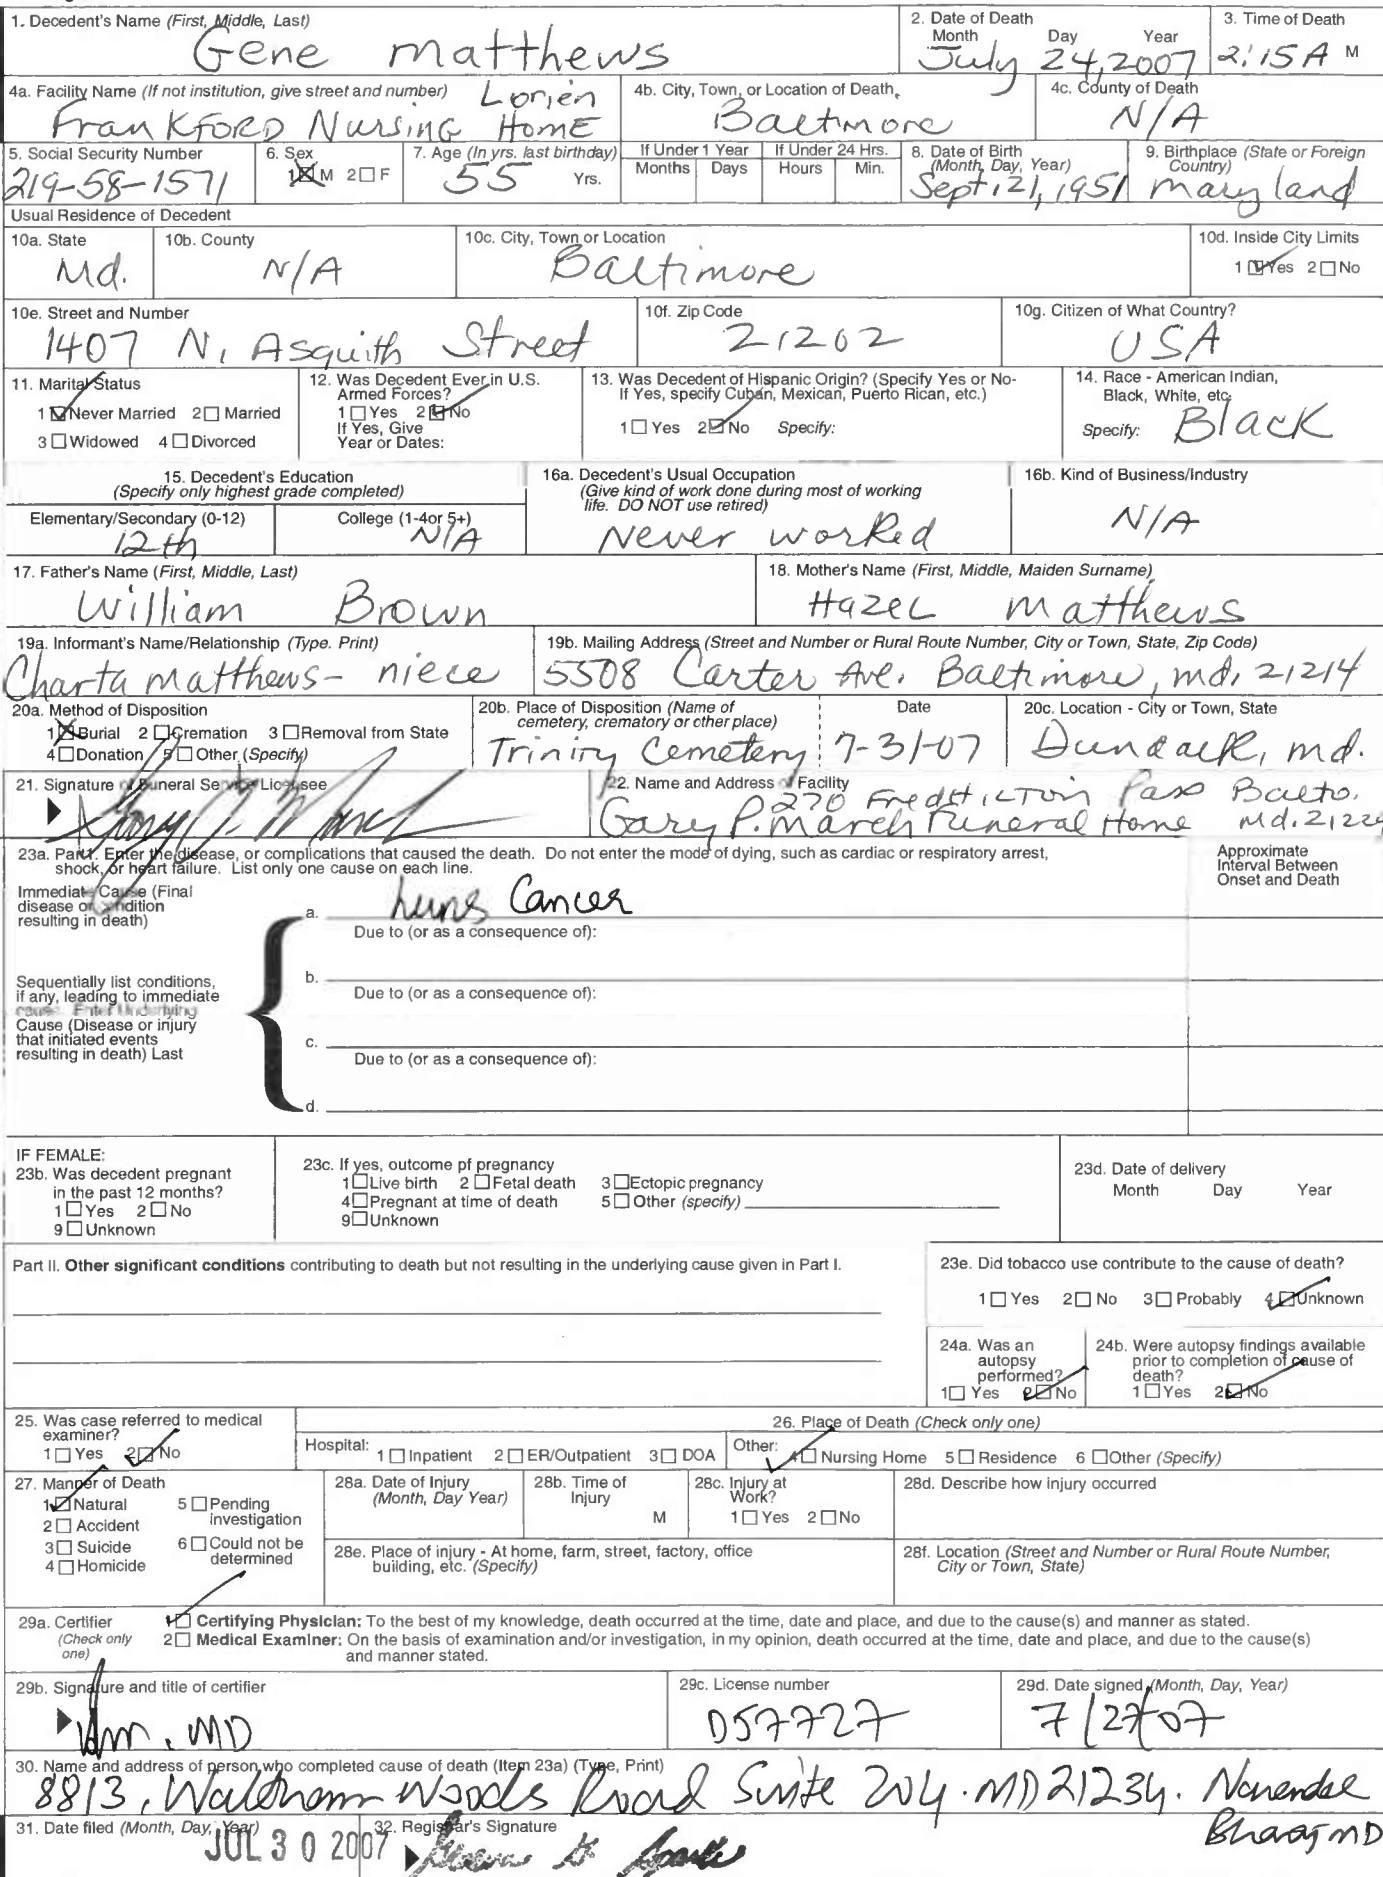 1. Decedent's Name (First, Middle, Last)
Gene Matthews
2. Date of Death
Month Day Year
July 24, 2007
3. Time of Death
2:15 A M
4a. Facility Name (If not institution, give street and number)
Lorien
Frankford Nursing Home
4b. City, Town, or Location of Death
Baltimore
4c. County of Death
N/A
5. Social Security Number
219-58-1571
6. Sex
1☒ M 2☐ F
7. Age (In yrs. last birthday)
55 Yrs.
If Under 1 Year
Months Days
If Under 24 Hrs.
Hours Min.
8. Date of Birth
(Month, Day, Year)
Sept. 21, 1951
9. Birthplace (State or Foreign
Country)
Maryland
Usual Residence of Decedent
10a. State
Md.
10b. County
N/A
10c. City, Town or Location
Baltimore
10d. Inside City Limits
1☑Yes 2☐No
10e. Street and Number
1407 N. Asquith Street
10f. Zip Code
21202
10g. Citizen of What Country?
USA
11. Marital Status
1☑Never Married 2☐Married
3☐Widowed 4☐Divorced
12. Was Decedent Ever in U.S.
Armed Forces?
1☐Yes 2☑No
If Yes, Give
Year or Dates:
13. Was Decedent of Hispanic Origin? (Specify Yes or No-
If Yes, specify Cuban, Mexican, Puerto Rican, etc.)
1☐Yes 2☑No Specify:
14. Race - American Indian,
Black, White, etc.
Specify: Black
15. Decedent's Education
(Specify only highest grade completed)
Elementary/Secondary (0-12)
12th
College (1-4or 5+)
N/A
16a. Decedent's Usual Occupation
(Give kind of work done during most of working
life. DO NOT use retired)
Never worked
16b. Kind of Business/Industry
N/A
17. Father's Name (First, Middle, Last)
William Brown
18. Mother's Name (First, Middle, Maiden Surname)
Hazel Matthews
19a. Informant's Name/Relationship (Type. Print)
Charta Matthews- niece
19b. Mailing Address (Street and Number or Rural Route Number, City or Town, State, Zip Code)
5508 Carter Ave. Baltimore, md. 21214
20a. Method of Disposition
1☒Burial 2☐Cremation 3☐Removal from State
4☐Donation 5☐Other (Specify)
20b. Place of Disposition (Name of
cemetery, crematory or other place)
Trinity Cemetery
Date
7-31-07
20c. Location - City or Town, State
Dundalk, md.
21. Signature of Funeral Service Licensee
22. Name and Address of Facility
270 FredHilton Pass Balto.
Gary P. March Funeral Home Md. 21229
23a. Part I. Enter the disease, or complications that caused the death. Do not enter the mode of dying, such as cardiac or respiratory arrest,
shock, or heart failure. List only one cause on each line.
Approximate
Interval Between
Onset and Death
Immediate Cause (Final
disease or condition
resulting in death)
a. Lung Cancer
Due to (or as a consequence of):
Sequentially list conditions,
if any, leading to immediate
cause. Enter Underlying
Cause (Disease or injury
that initiated events
resulting in death) Last
b.
Due to (or as a consequence of):
c.
Due to (or as a consequence of):
d.
IF FEMALE:
23b. Was decedent pregnant
in the past 12 months?
1☐Yes 2☐No
9☐Unknown
23c. If yes, outcome pf pregnancy
1☐Live birth 2☐Fetal death 3☐Ectopic pregnancy
4☐Pregnant at time of death 5☐Other (specify)
9☐Unknown
23d. Date of delivery
Month Day Year
Part II. Other significant conditions contributing to death but not resulting in the underlying cause given in Part I.
23e. Did tobacco use contribute to the cause of death?
1☐Yes 2☐No 3☐Probably 4☑Unknown
24a. Was an
autopsy
performed?
1☐Yes 2☑No
24b. Were autopsy findings available
prior to completion of cause of
death?
1☐Yes 2☑No
25. Was case referred to medical
examiner?
1☐Yes 2☑No
26. Place of Death (Check only one)
Hospital: 1☐Inpatient 2☐ER/Outpatient 3☐DOA
Other: 4☑Nursing Home 5☐Residence 6☐Other (Specify)
27. Manner of Death
1☑Natural 5☐Pending
investigation
2☐Accident
3☐Suicide 6☐Could not be
determined
4☐Homicide
28a. Date of Injury
(Month, Day Year)
28b. Time of
Injury
M
28c. Injury at
Work?
1☐Yes 2☐No
28d. Describe how injury occurred
28e. Place of injury - At home, farm, street, factory, office
building, etc. (Specify)
28f. Location (Street and Number or Rural Route Number,
City or Town, State)
29a. Certifier
(Check only
one)
1☑ Certifying Physician: To the best of my knowledge, death occurred at the time, date and place, and due to the cause(s) and manner as stated.
2☐ Medical Examiner: On the basis of examination and/or investigation, in my opinion, death occurred at the time, date and place, and due to the cause(s)
and manner stated.
29b. Signature and title of certifier
MD
29c. License number
D57727
29d. Date signed (Month, Day, Year)
7/27/07
30. Name and address of person who completed cause of death (Item 23a) (Type, Print)
8813, Waltham Woods Road Suite 204. MD 21234.
MD
31. Date filed (Month, Day, Year)
JUL 30 2007
32. Registrar's Signature